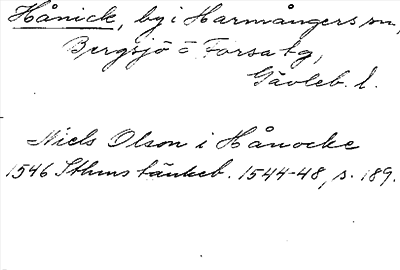 Hånick, by i Harmångers sn,
Bergsjö o Forsa tg,
Gävleb. l.
Niels Olson i Hånocke
1546 Sthms tänkeb. 1544-48, s. 189.